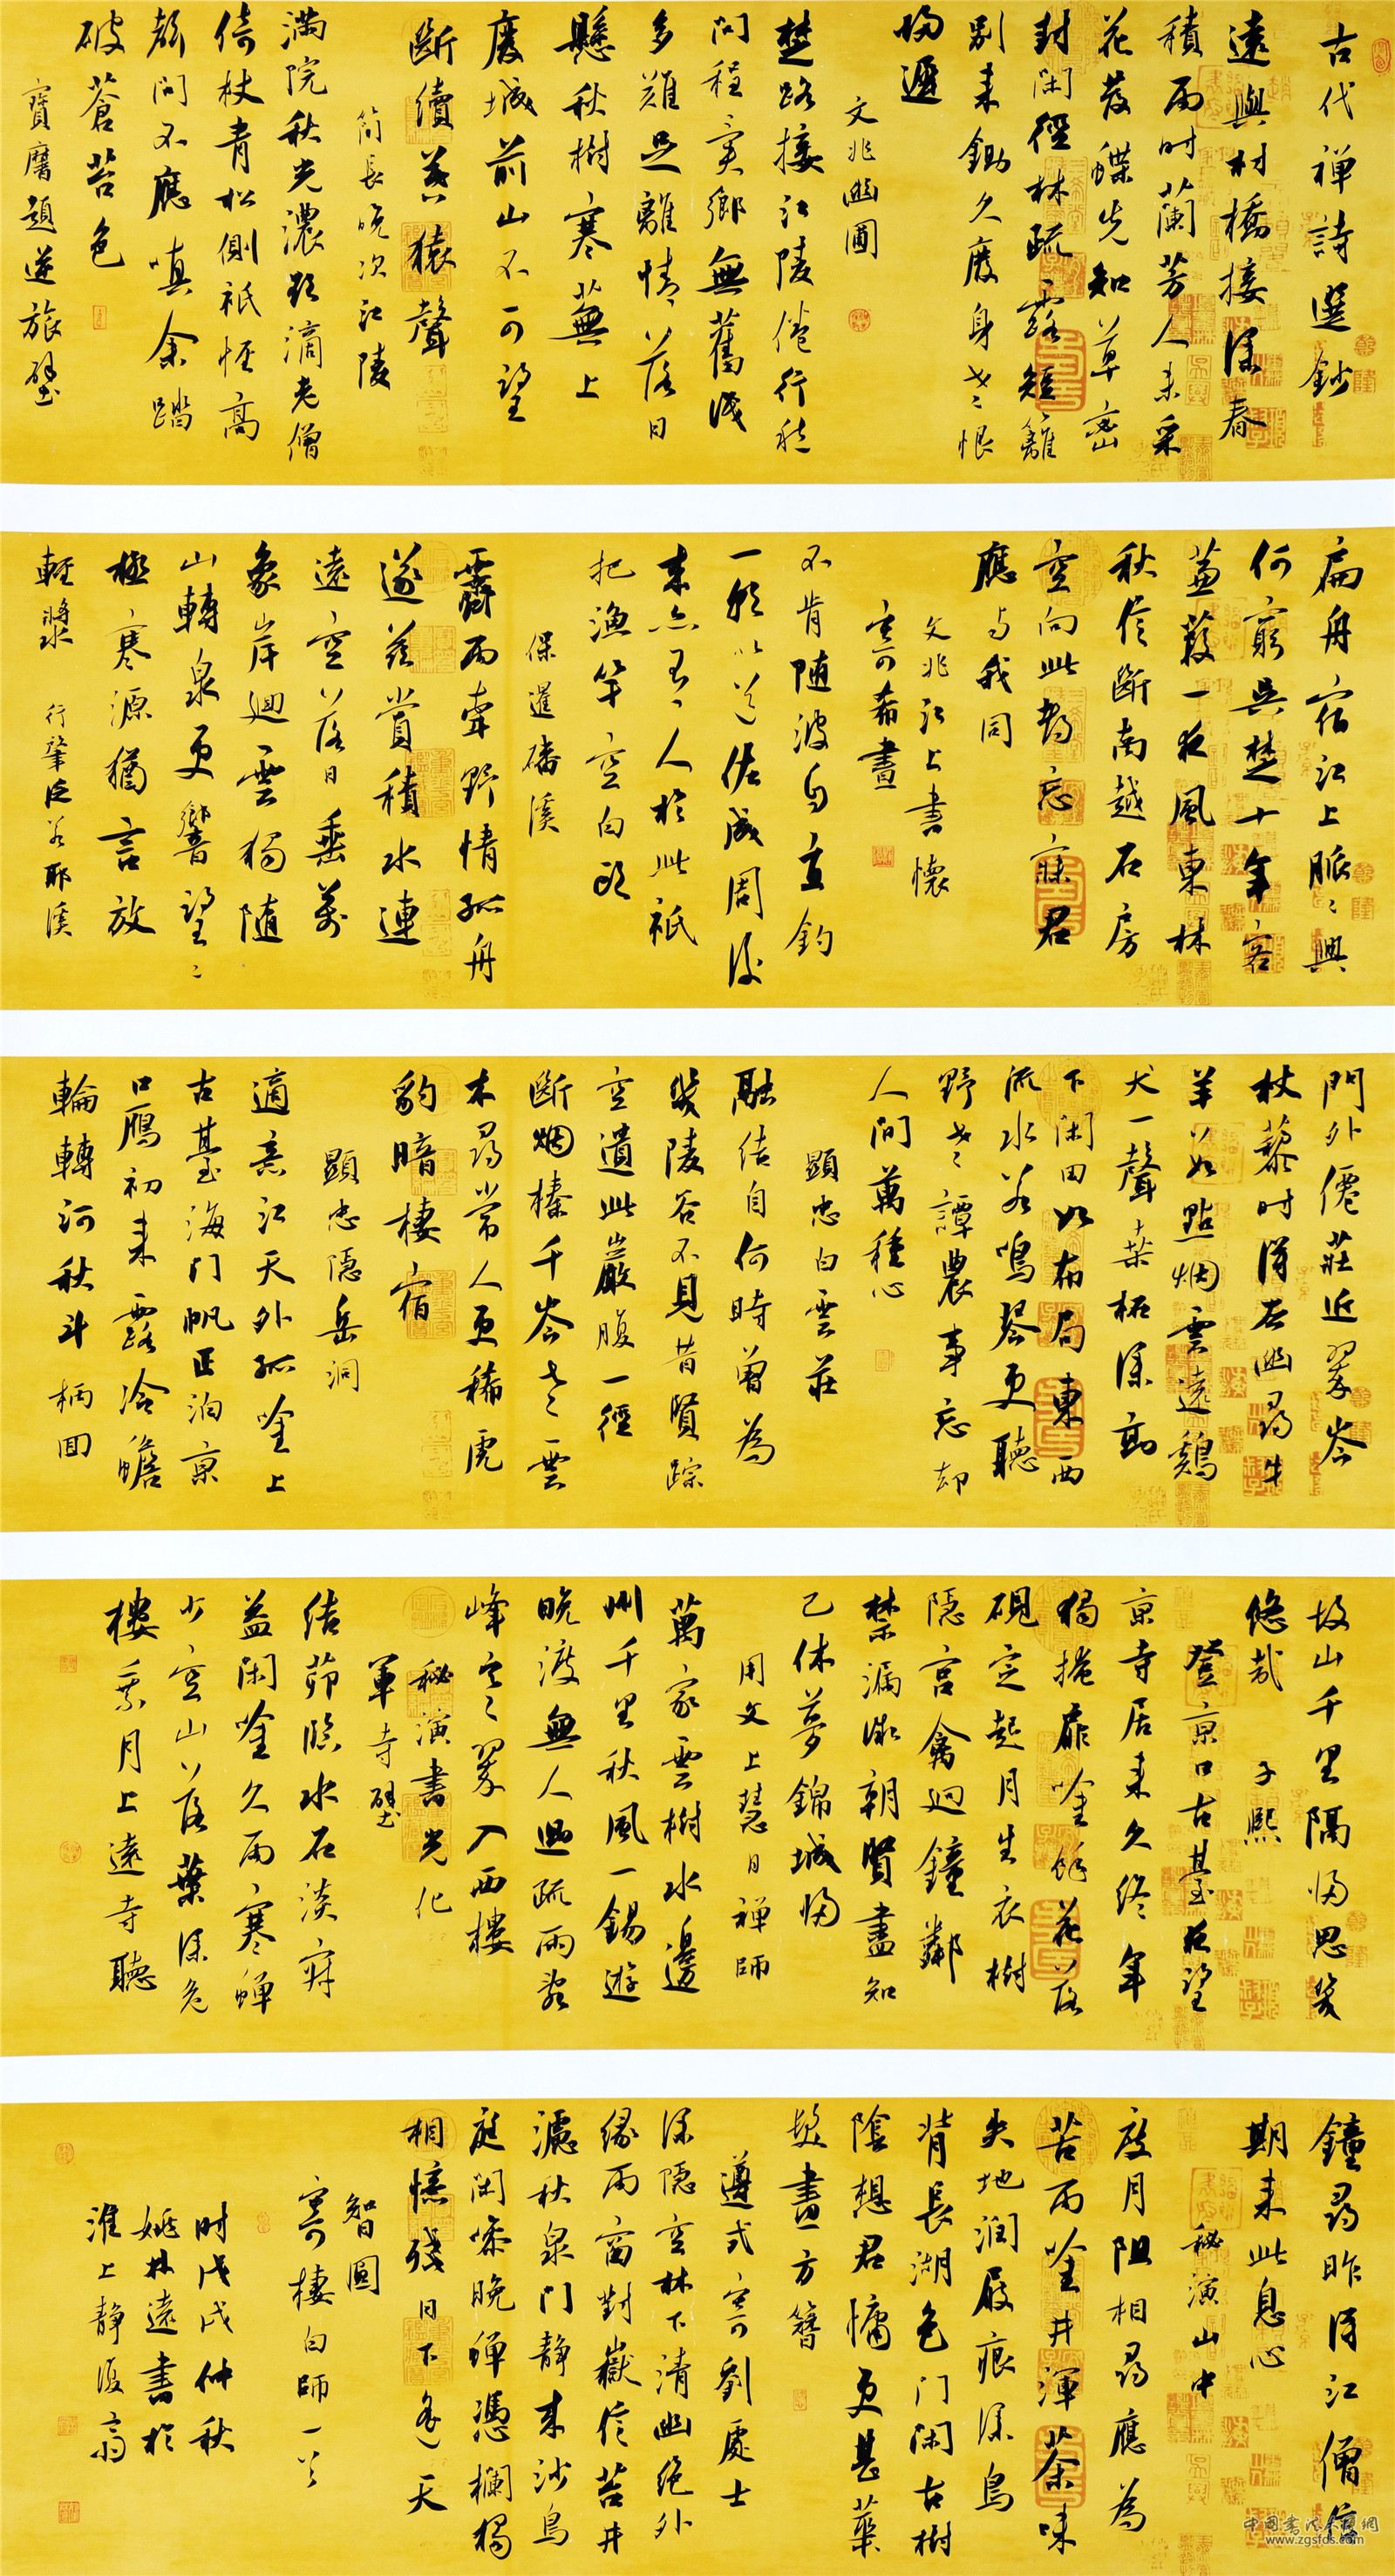 古代禅詩選鈔
遠與村橋接深春
積雨時蘭芳人未采
花發蝶先知草密
封閑徑林疏露短籬
別来鋤久廢身老恨
歸遲
文兆幽圃
楚路接江陵倦行愁
問程異鄉無舊識
多難足離情落日
懸秋樹寒蕪上
廢城前山不可望
斷續暮猿聲
簡長晚次江陵
满院秋光濃欲滴老僧
倚杖青松側祇恠高
聲問不應嗔余踏
破蒼苔色
寶麐題逆旅壁
扁舟宿江上脈脈興
何窮吳楚十年客
蒹葭一夜風東林
秋信斷南越石房
空向此都忘寐君
應与我同
文兆江上書懷
寄希晝
不肯随波自直釣
一能以道佐成周後
来亦有人於此祇
把渔竿空白頭
保暹磻溪
霽雨牽野情孤舟
遂兹賞積水連
遠空落日垂萬
象岸迴雲獨随
山轉泉更響望望
極寒源猶言放
輕槳 行肇泛若耶溪
門外僊莊近翠岑
杖藜时得去幽尋牛
羊數點烟雲遠鷄
犬一聲桑柘深高
下閑田如布局東西
流水若鳴琴更聽
野老譚農事忘却
人间萬種心
顯忠白雲莊
融结自何時曾為
幾陵谷不見昔賢踪
空遺此巖腹一徑
斷烟榛千岑老雲
木尋常人更稀虎
豹暗棲宿
顯忠隱岳洞
適意江天外孤吟上
古基海门帆正泊京
口鴈初来露冷蟾
輪轉河秋斗柄回
故山千里隔歸思幾
悠哉 子熙
登京口古基夜望
京寺居来久终年
獨掩扉吟餘花落
硯定起月生衣樹
隱宫禽迴鐘鄰
禁漏微朝賢盡知
己休夢錦城歸
用文上慧日禅師
萬家雲樹水邊
州千里秋風一錫遊
晚渡無人過疏雨歇
峰老老翠入西樓
秘演書光化
軍寺壁
结茆臨水石淡寂
益閑吟久雨寒蝉
少空山落葉深危
樓乘月上遠寺聽
鐘尋昨得江僧信
期来此息心
秘演山中
度月阻相尋應為
苦雨吟井渾茶味
失地润屐痕深鳥
背長湖色门闲古樹
陰想君慵更甚藥
髮晝方簪
遵式寄劉處士
深隱空林下清幽绝外
缘雨窗對嶽信苔井
濾秋泉门静来沙鳥
庭闲噪晚蝉憑欄獨
相憶殘日下遙天
智圓
寄棲白師一首
时戊戌仲秋
姚林遠書於
淮上静復齋
中国書法字画網
www.zgsfds.com